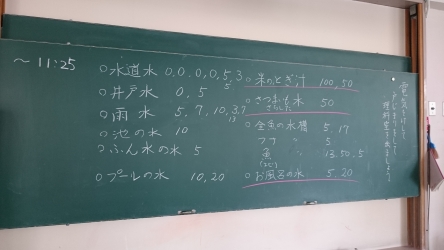 ～11:25
○水道水 0,0,0,0,5,3
5
○井戸水 0.5
○雨水 5,7,10,3,7
13
○池の水 10
○ふん水の水 5
○プールの水 10,20
○米のとぎ汁 100,50
○さつまいも水 50
さらした
○金魚の水槽 5,17
フナ 〃 5
魚 〃 13,50,5
○お風呂の水 5,20
電気を消して
戸じまりをして
理科室を出ましょう